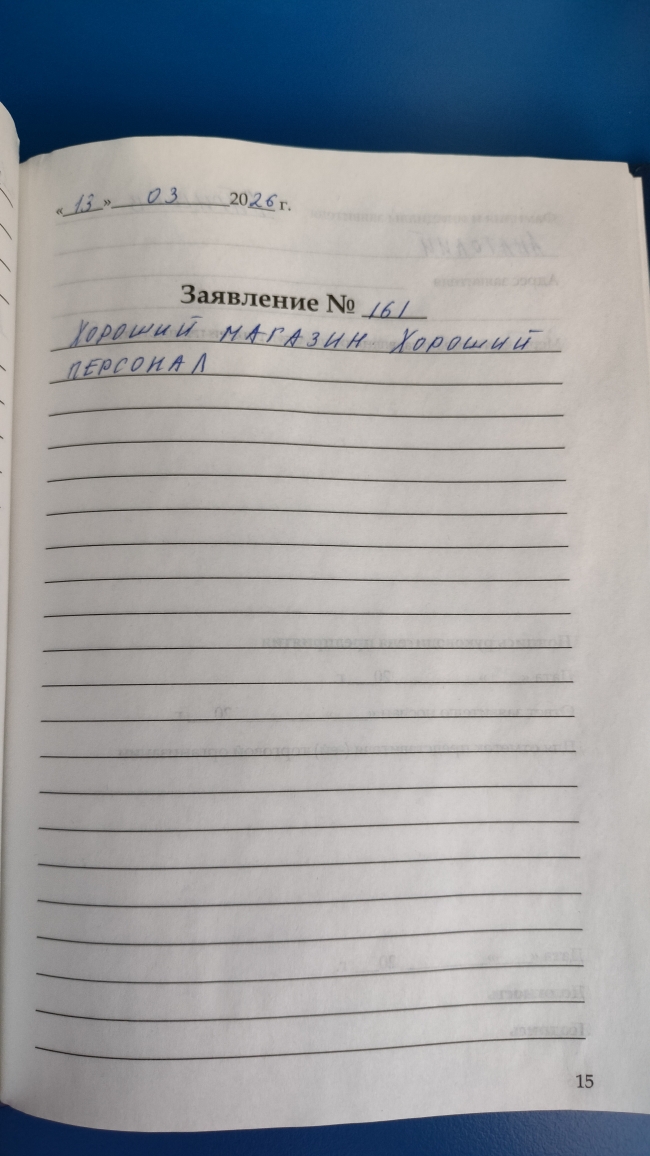 «13» 03 2026 г.
Заявление № 161
ХОРОШИЙ МАГАЗИН ХОРОШИЙ
ПЕРСОНАЛ
15